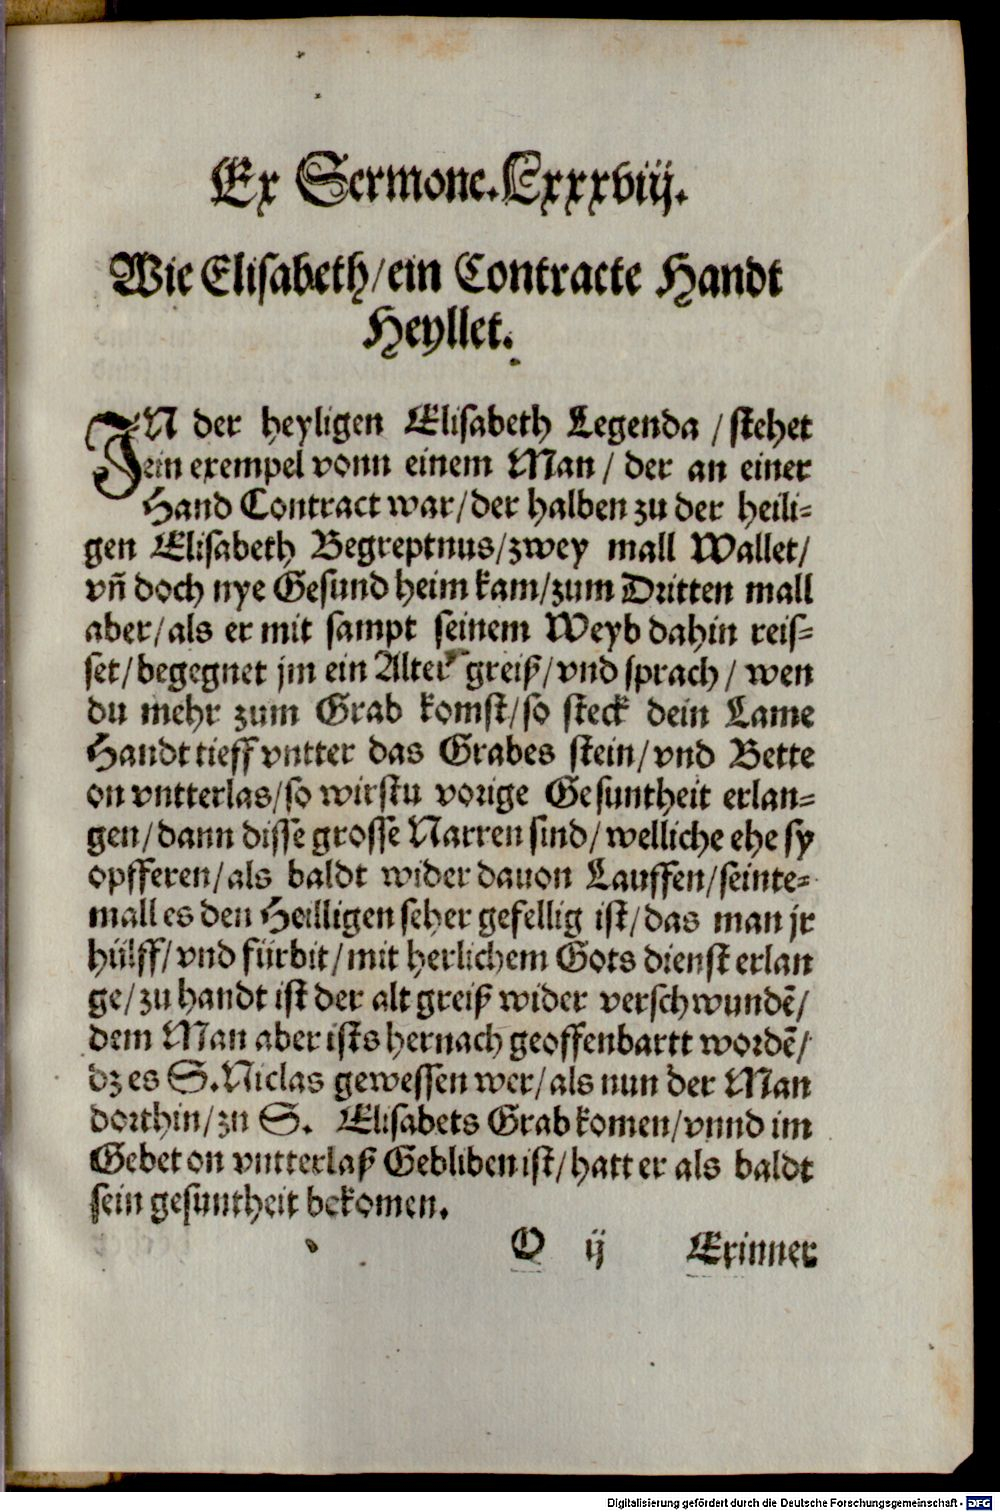 Ex Sermone.Lxxxviij.
Wie Elisabeth/ein Contracte Handt
Heyllet.
IN der heyligen Elisabeth Legenda / stehet
ein exempel vonn einem Man / der an einer
Hand Contract war/der halben zu der heili-
gen Elisabeth Begreptnus/zwey mall Wallet/
vñ doch nye Gesund heim kam/zum Dritten mall
aber/als er mit sampt seinem Weyb dahin reis-
set/begegnet jm ein Alter greiß/vnd sprach / wen
du mehr zum Grab komst/so steck dein Lame
Handt tieff vntter das Grabes stein/vnd Bette
on vntterlas/so wirstu vorige Gesuntheit erlan-
gen/dann disse grosse Narren sind/welliche ehe sy
opfferen/als baldt wider dauon Lauffen/seinte-
mall es den Heilligen seher gefellig ist/das man jr
hülff/vnd fürbit/mit herlichem Gots dienst erlan
ge/zu handt ist der alt greiß wider verschwundẽ/
dem Man aber ists hernach geoffenbartt wordẽ/
dz es S.Niclas gewessen wer/als nun der Man
dorthin/zu S. Elisabets Grab komen/vnnd im
Gebet on vntterlaß Gebliben ist/hatt er als baldt
sein gesuntheit bekomen.
O ij Erinner
Digitalisierung gefördert durch die Deutsche Forschungsgemeinschaft - DFG